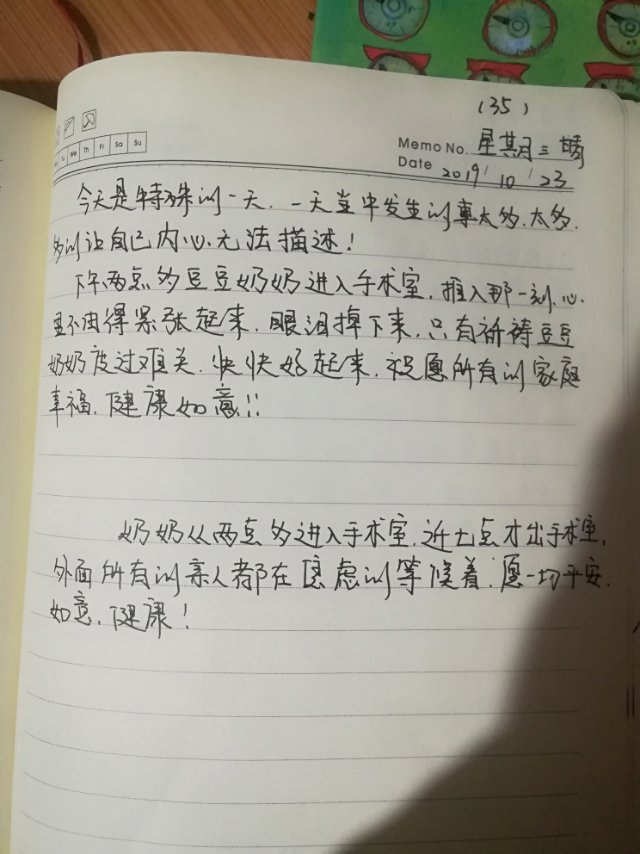 (35)
Tu We Th Fr Sa Su
Memo No. 星期三 晴
Date 2019/10/23
今天是特殊的一天.一天当中发生的事太多.太多.
多的让自己内心无法描述!
下午两点多豆豆奶奶进入手术室,推入那一刻.心
里不由得紧张起来.眼泪掉下来.只有祈祷豆豆
奶奶度过难关.快快好起来.祝愿所有的家庭
幸福.健康如意!!
奶奶从两点多进入手术室.近七点才出手术室.
外面所有的亲人都在焦虑的等候着.愿一切平安.
如意.健康!